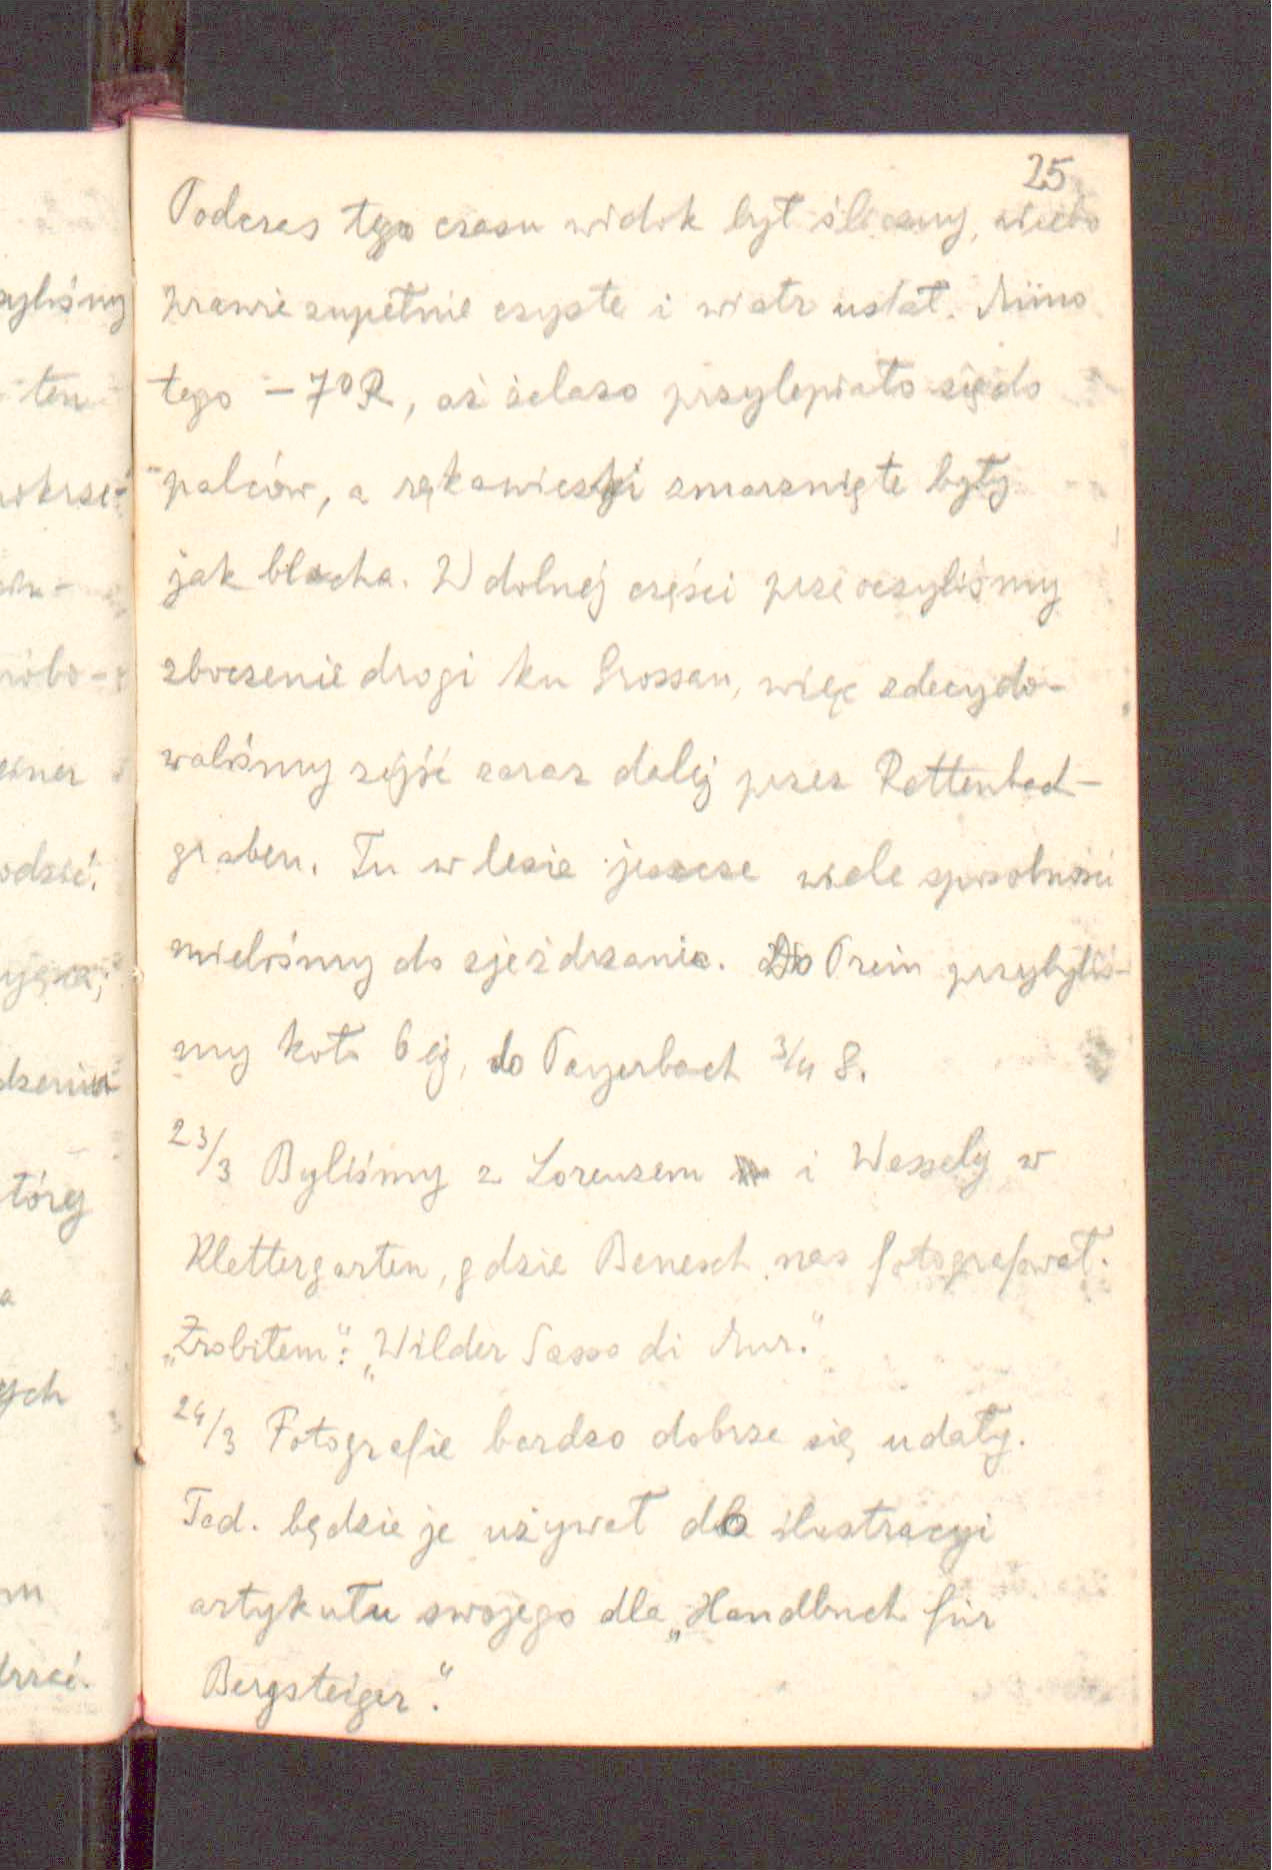 25
Podczas tego czasu widok był śliczny, niebo
prawie zupełnie czyste i wiatr ustał. Mimo
tego – 7°R, aż żelazo przylepiało się do
palców, a rękawiczki zmarznięte były
jak blacha. W dolnej części przeoczyliśmy
zboczenie drogi ku Grossau, więc zdecydo-
waliśmy zejść zaraz dalej przez Rettenbad-
graben. Tu w lesie jeszcze wiele sposobności
mieliśmy do zjeżdżania. Do Prein przybyliś-
my koło 6ej, do Payerbach 3/4 8.
23/3 Byliśmy z Lorenzem i Wessely w
Klettergarten, gdzie Benesch nas fotografował.
„Zrobiłem”: „Wilder Sasso di Mur.”
24/3 Fotografie bardzo dobrze się udały.
Tad. będzie je używał do ilustracyi
artykułu swojego dla „Handbuch für
Bergsteiger”.
zyliśmy
ten
okrze-
róbo-
odzić.
dzeniu
tórej
a
ych
m